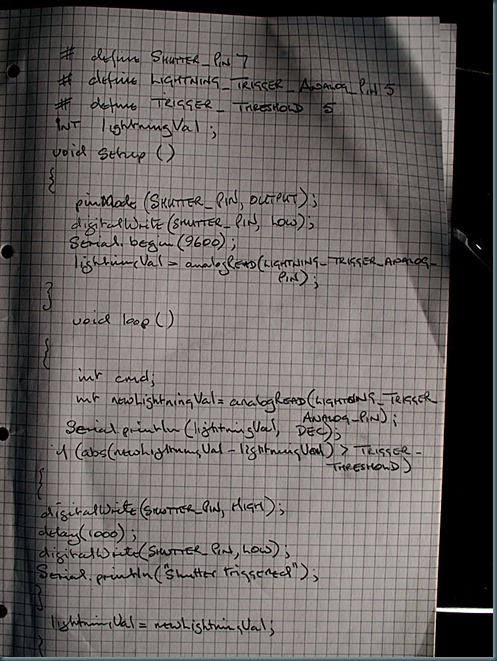 # define SHUTTER_PIN 7
# define LIGHTNING_TRIGGER_ANALOG_PIN 5
# define TRIGGER_THRESHOLD 5
INT lightningVal ;
void setup ()
{
pinMode (SHUTTER_PIN, OUTPUT) ;
digitalWrite (SHUTTER_PIN, LOW) ;
Serial.begin (9600) ;
lightningVal = analogREAD(LIGHTNING_TRIGGER_ANALOG_
PIN) ;
}
void loop ()
{
int cmd;
int newLightningVal = analogREAD (LIGHTNING_TRIGGER
ANALOG_PIN) ;
Serial.println (lightningVal, DEC);
if (abs(newLightningVal - lightningVal) > TRIGGER_
THRESHOLD)
{
digitalWrite (SHUTTER_PIN, HIGH) ;
delay (1000) ;
digitalWrite (SHUTTER_PIN, LOW) ;
Serial.println ("Shutter triggered") ;
}
lightningVal = newLightningVal;
}